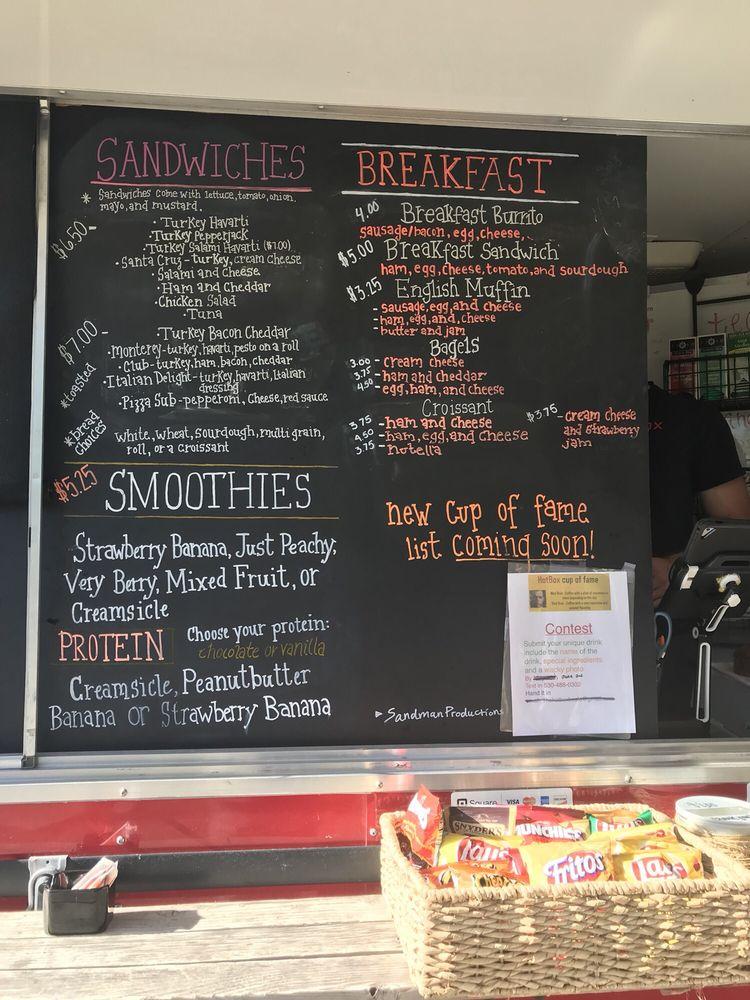 SANDWICHES
* Sandwiches come with lettuce, tomato, onion,
mayo, and mustard.
$6.50 -
• Turkey Havarti
• Turkey Pepperjack
• Turkey Salami Havarti ($7.00)
• Santa Cruz - turkey, cream cheese
• Salami and Cheese
• Ham and Cheddar
• Chicken Salad
• Tuna
$7.00 -
• Turkey Bacon Cheddar
*toasted
• Monterey - turkey, havarti, pesto on a roll
• Club - turkey, ham, bacon, cheddar
• Italian Delight - turkey, havarti, Italian
dressing
• Pizza Sub - pepperoni, cheese, red sauce
*bread
choices
white, wheat, sourdough, multi grain,
roll, or a croissant
$5.25
SMOOTHIES
Strawberry Banana, Just Peachy,
Very Berry, Mixed Fruit, or
Creamsicle
PROTEIN
Choose your protein:
chocolate or vanilla
Creamsicle, Peanutbutter
Banana or Strawberry Banana
BREAKFAST
4.00 Breakfast Burrito
sausage/bacon, egg, cheese,
$5.00 Breakfast Sandwich
ham, egg, cheese, tomato, and sourdough
$3.25 English Muffin
- sausage, egg, and cheese
- ham, egg, and cheese
- butter and jam
Bagels
3.00 - cream cheese
3.75 - ham and cheddar
4.50 - egg, ham, and cheese
Croissant
3.75 - ham and cheese
4.50 - ham, egg, and cheese
3.75 - nutella
$3.75 - cream cheese
and strawberry
jam
new cup of fame
list coming soon!
▶ Sandman Productions
HotBox cup of fame
Contest
Submit your unique drink
include the name of the
drink, special ingredients
and a wacky photo
By
Text in 530-488-0302
Hand it in
Square VISA
SNYDER'S
MUNCHIES
Lay's
Fritos
Lay's